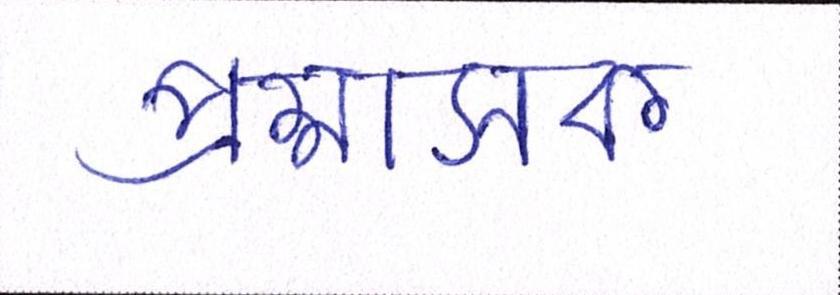 প্রশাসক